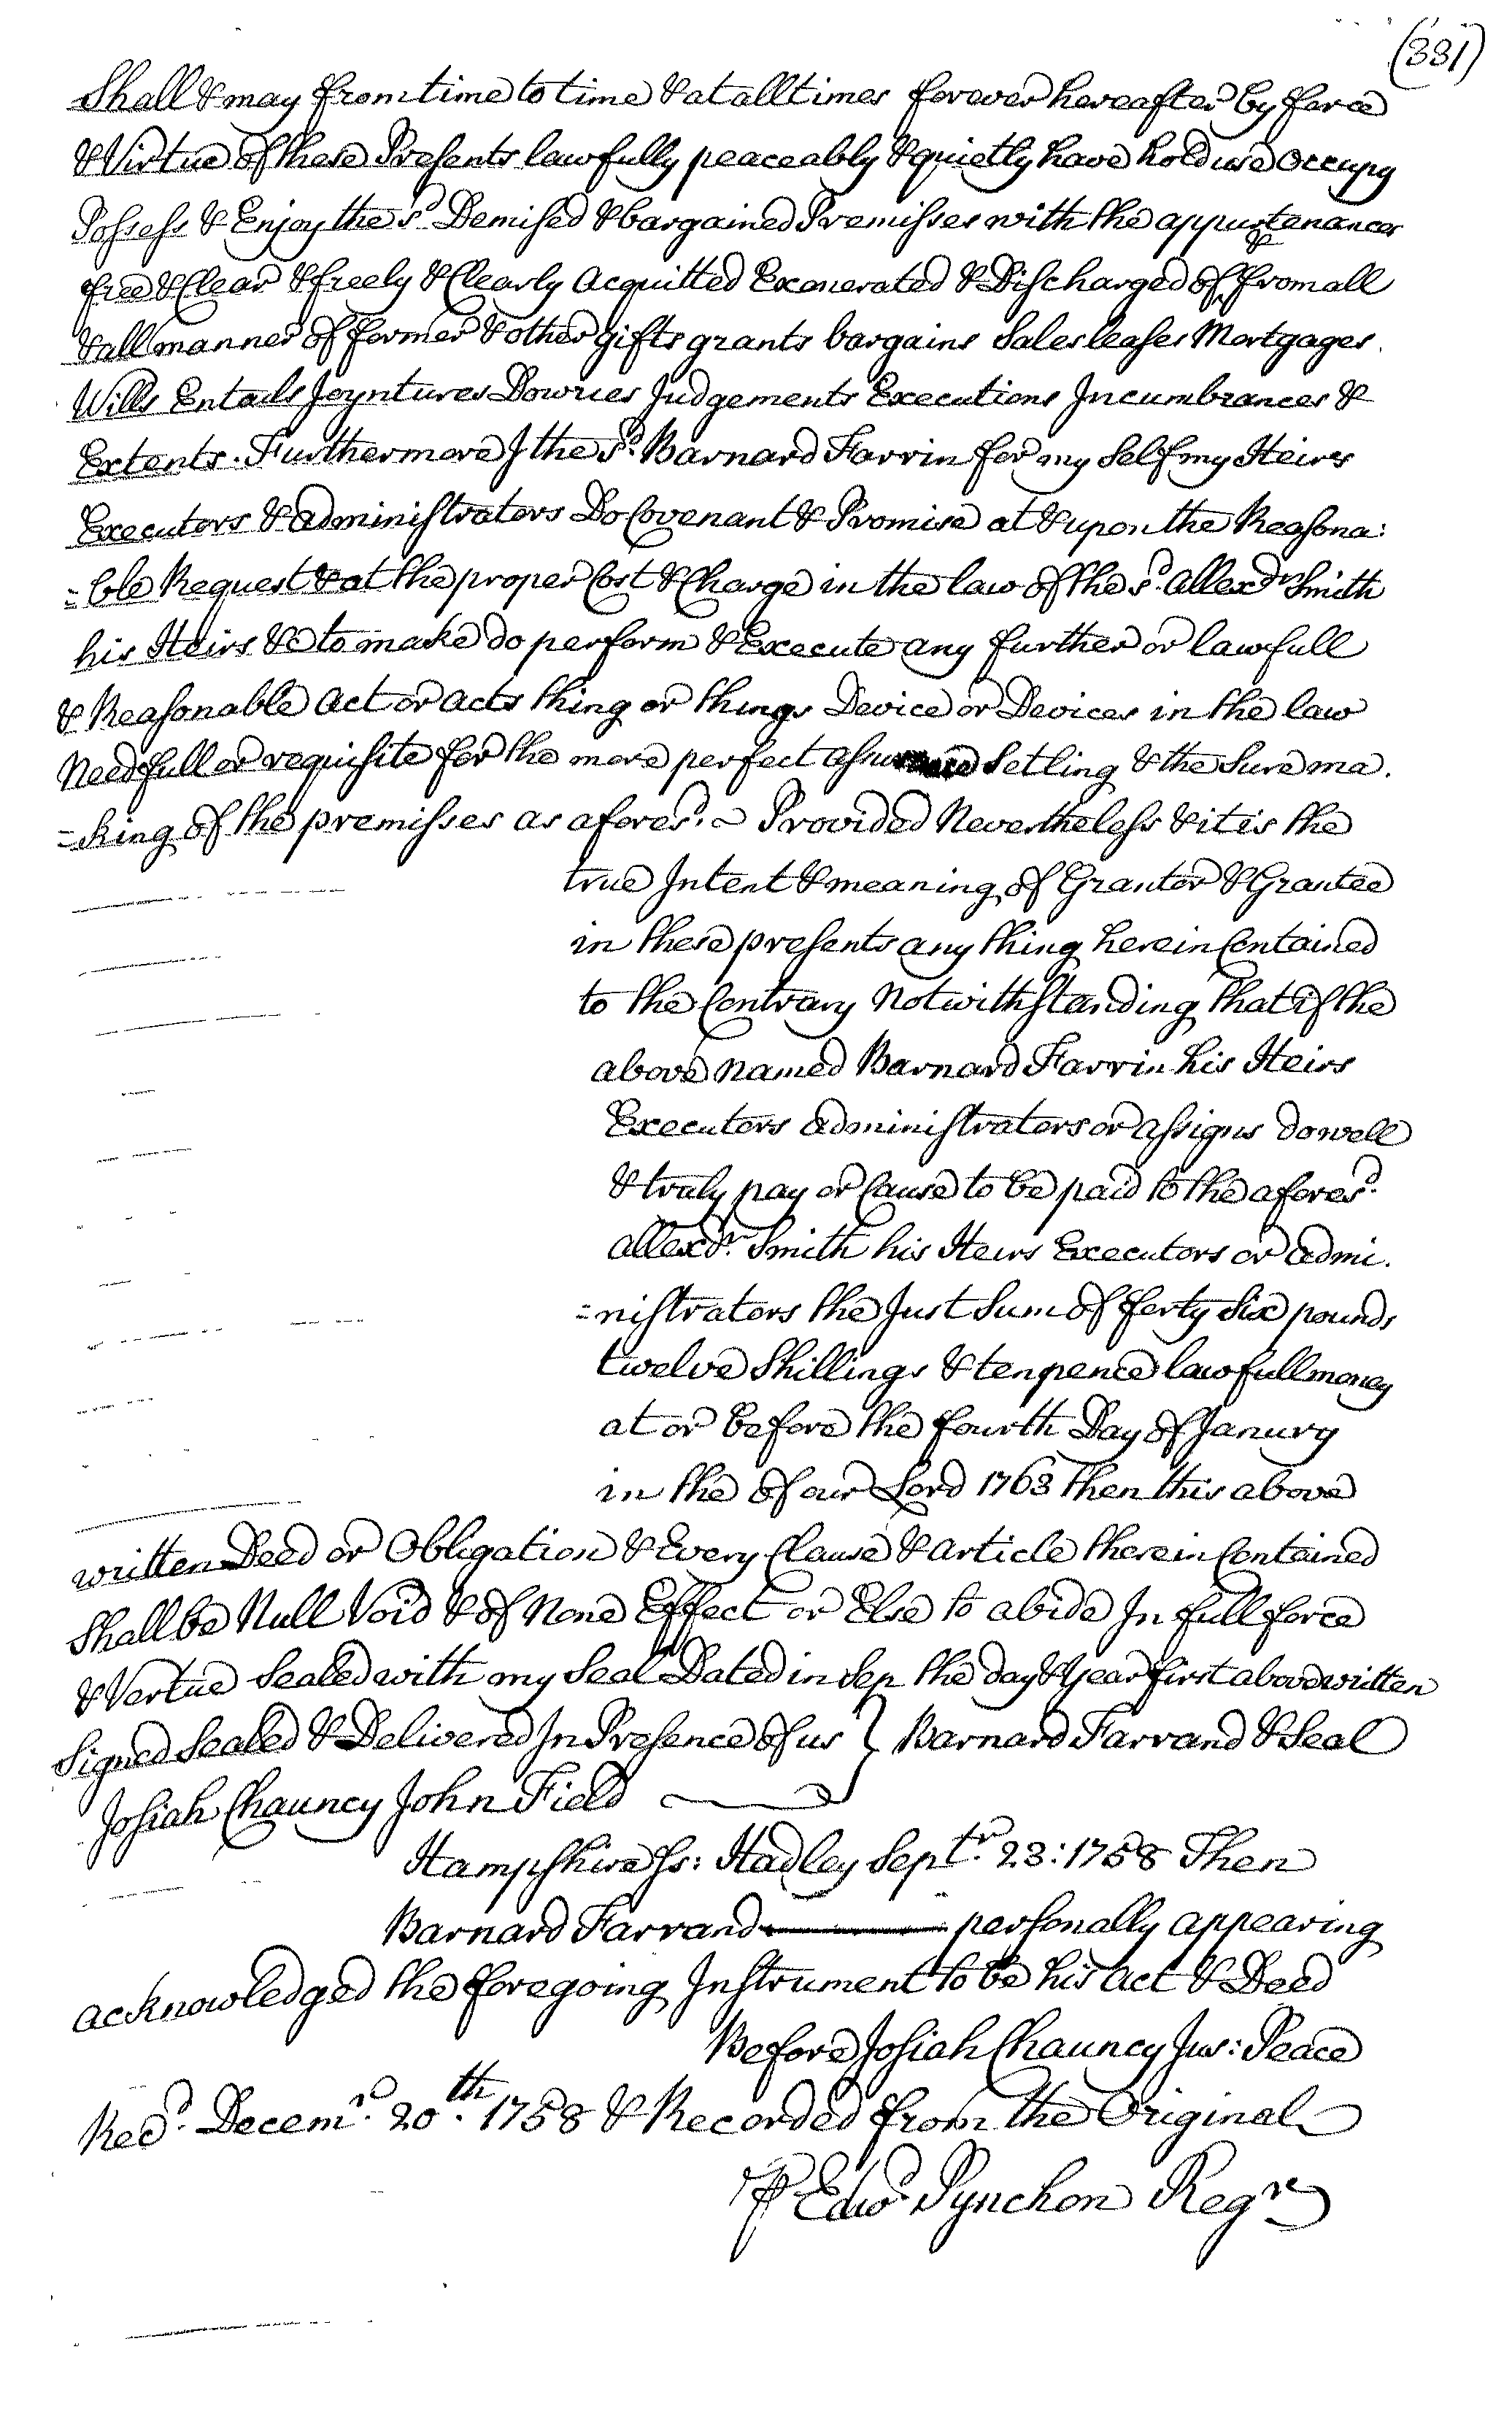 (331)
Shall & may from time to time & at all times forever hereafter by force
& Virtue of these Presents lawfully peaceably & quietly have hold use Occupy
Possess & Enjoy the sd. Demised & bargained Premisses with the appurtenances
free & Clear & freely & Clearly Acquitted Exonerated & Discharged of & from all
& all manner of former & other gifts grants bargains Sales leases Mortgages.
Wills Entails Joyntures Dowries Judgements Executions Incumbrances &
Extents. Furthermore I the sd. Barnard Farrin for my Self my Heirs
Executors & administrators Do Covenant & Promise at & upon the Reasona:
=ble Request & at the proper Cost & Charge in the law of the sd. Allexdr Smith
his Heirs &c to make do perform & Execute any further or lawfull
& Reasonable Act or acts thing or things Device or Devices in the law
Needfull or requisite for the more perfect assurance Setling & the Sure ma.
=king of the premisses as aforesd. ~ Provided Nevertheless & it is the
true Intent & meaning of Grantor & Grantee
in these presents any thing herein Contained
to the Contrary Notwithstanding that if the
above named Barnard Farrin his Heirs
Executors administrators or assigns do well
& truly pay or Cause to be paid to the aforesd.
allexdr. Smith his Heirs Executors or admi.
=nistrators the Just Sum of forty Six pounds
twelve Shillings & ten pence lawfull money
at or before the fourth Day of Janury
in the of our Lord 1763 then this above
written Deed or Obligation & Every Clause & article therein Contained
Shall be Null Void & of None Effect or Else to abide In full force
& Vertue Sealed with my Seal Dated in Sep the day & Year first above written
Signed Sealed & Delivered In Presence of us } Barnard Farrand & Seal
Josiah Chauncy John Field
Hampshire ss: Hadley Septr. 23: 1758 Then
Barnard Farrand personally appearing
acknowledged the foregoing Instrument to be his act & Deed
Before Josiah Chauncy Jus: Peace
Recd. Decemr. 20th. 1758 & Recorded from the Original
⅌ Edwd Pynchon Regr